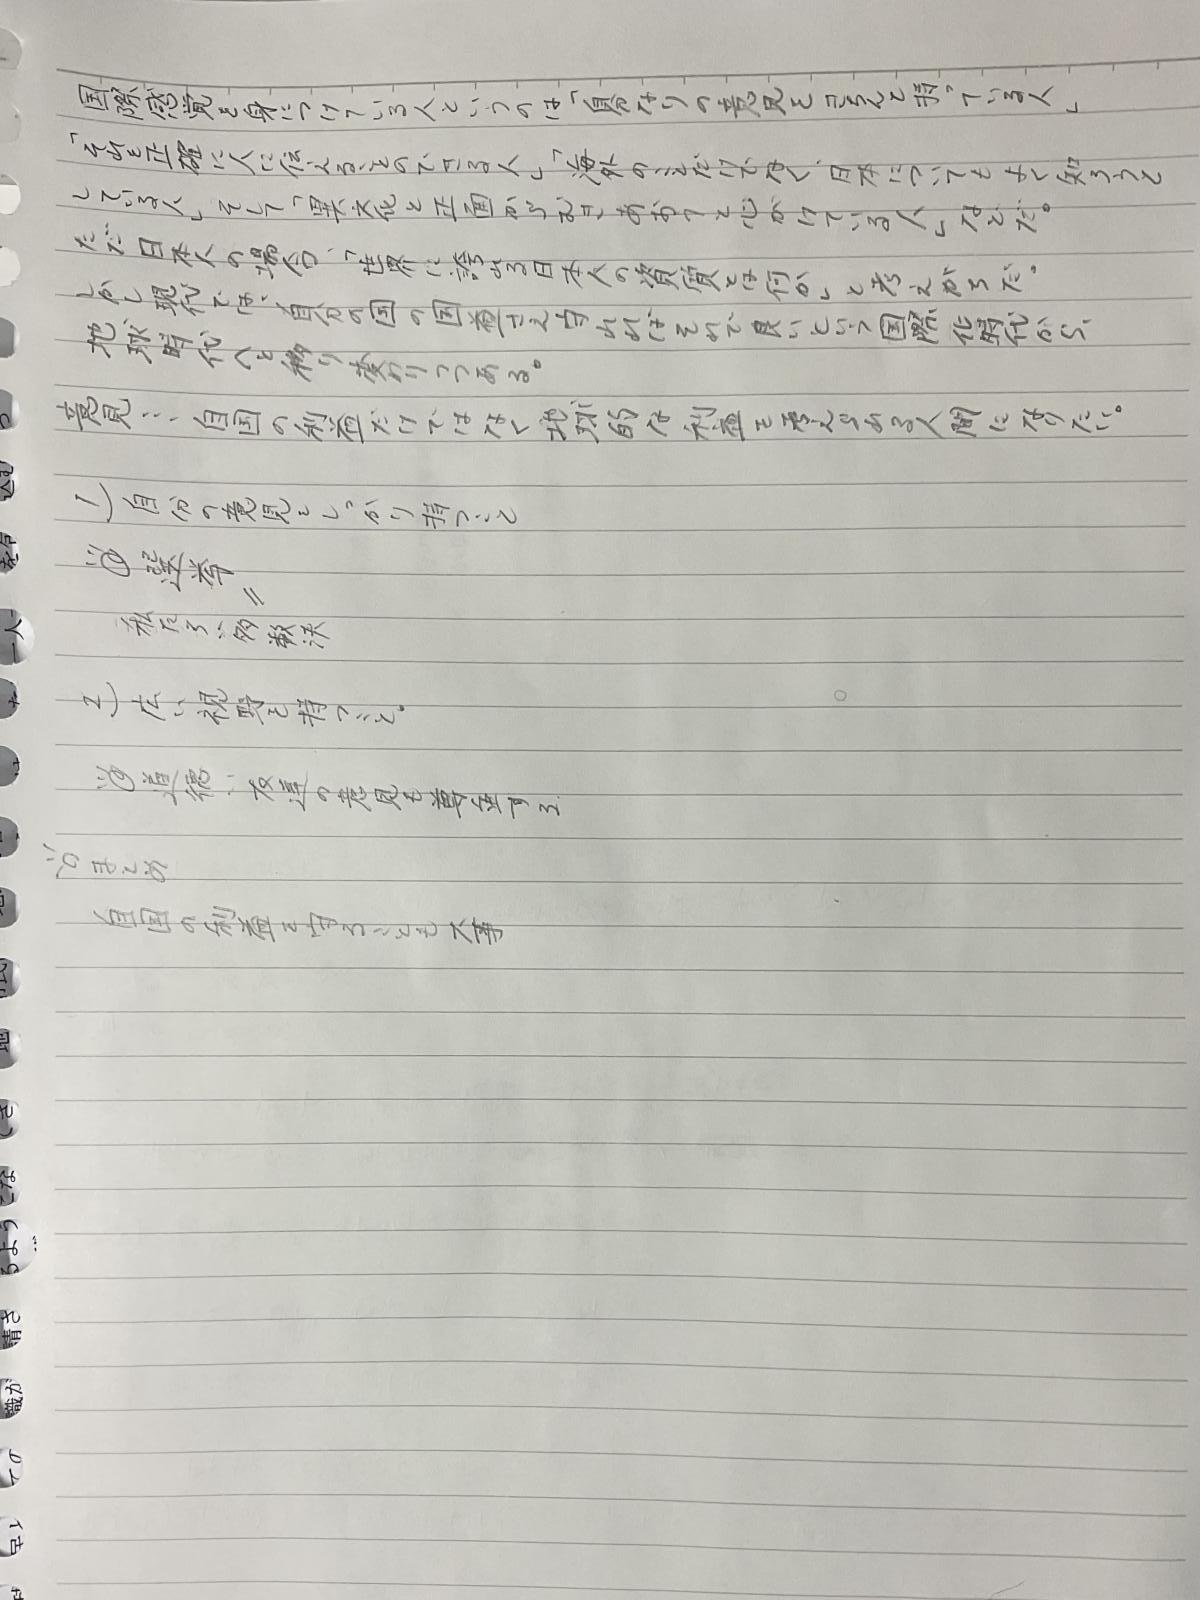 国際感覚を身につけている人というのは「自分なりの意見をきちんと持っている人」
「それを正確に人に伝えることのできる人」「海外のことだけでなく、日本についてもよく知ろうと
している人」そして「異文化と正面から記きあおうと心がけている人」などだ。
ただ日本人の場合、「世界に誇れる日本人の資質とは何か」と考えがちだ。
しかし現代では、自分の国の国益さえ守れればそれで良いという国際化時代から
地球時代へと移り変わりつつある。
意見… 自国の利益だけではなく地球的な利益を考えられる人間になりたい。
1) 自分の意見をしっかり持つこと
選挙
〃
私たち:多数決
2) 広い視野を持つこと。
道徳:友達の意見も尊重する
まとめ
自国の利益を守ることも大事